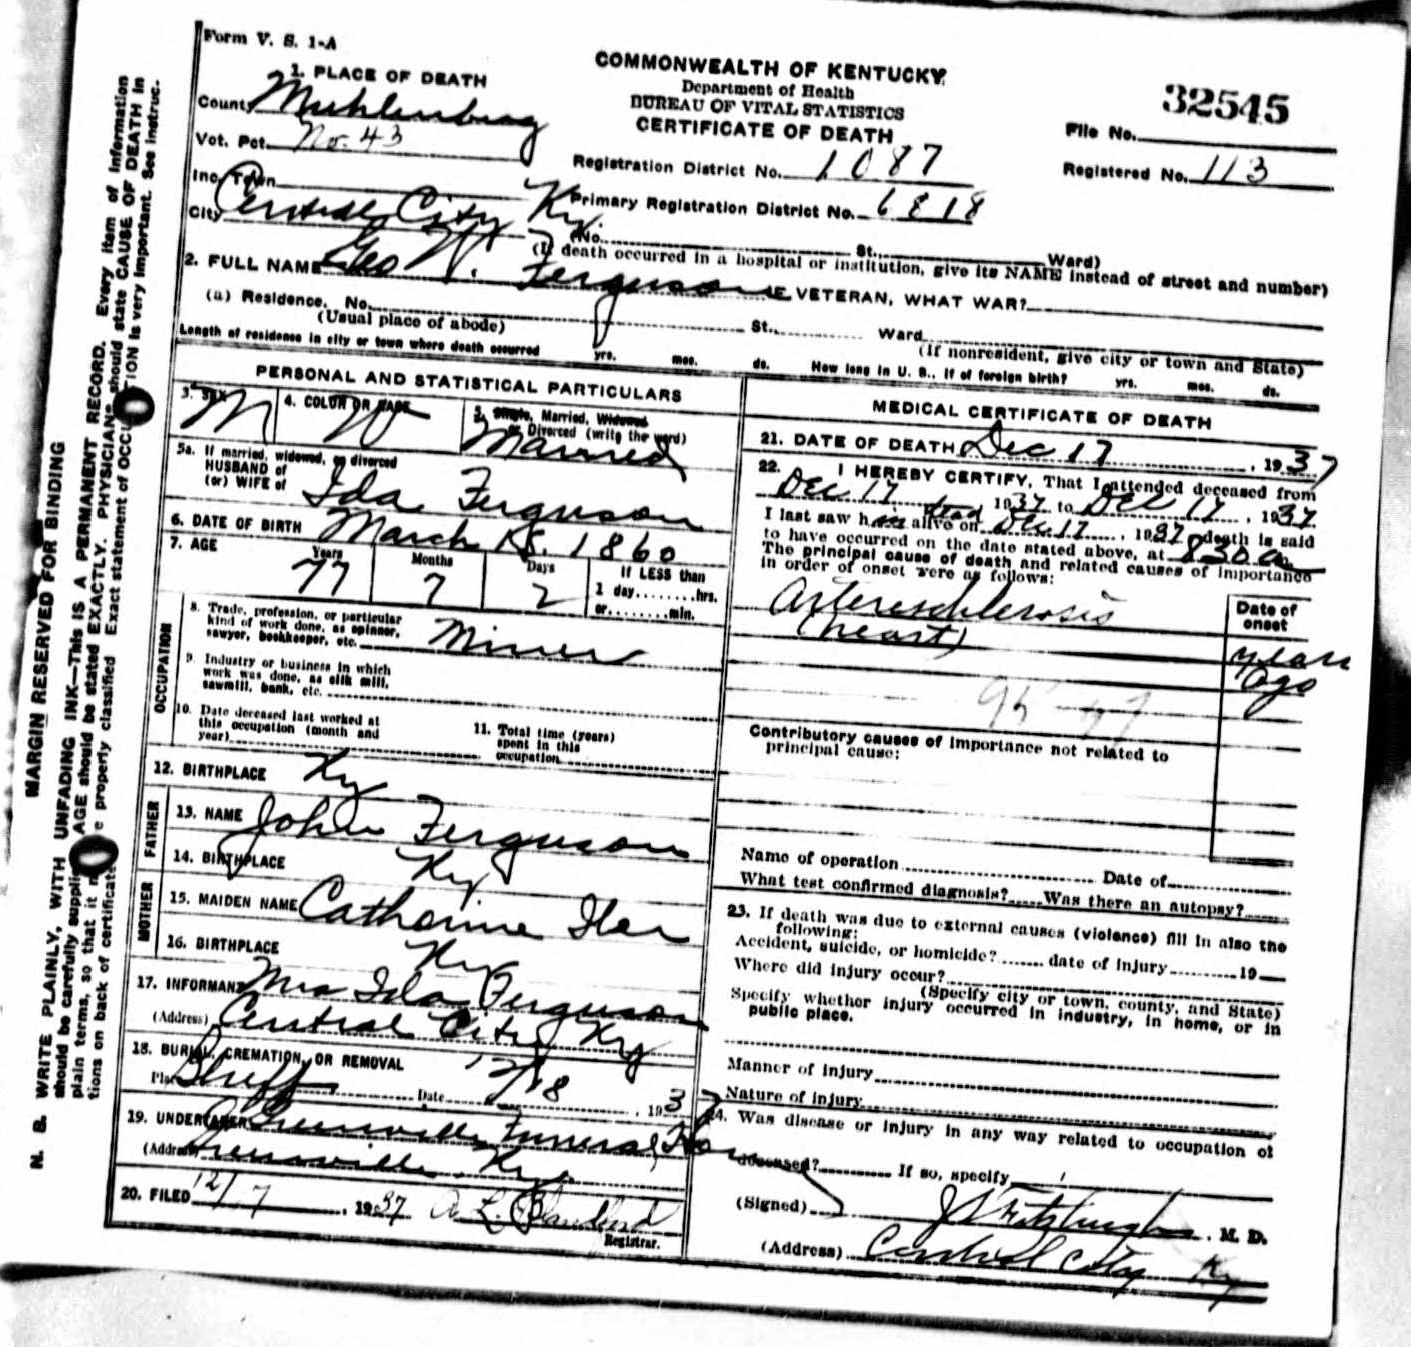 Form V. S. 1-A
COMMONWEALTH OF KENTUCKY
Department of Health
BUREAU OF VITAL STATISTICS
CERTIFICATE OF DEATH
32545
File No.
Registered No. 113
1. PLACE OF DEATH
County Muhlenburg
Vot. Pct. No. 43
Registration District No. 1087
Inc. Town
Primary Registration District No. 6818
City Central City Ky.
(No. St. Ward)
(If death occurred in a hospital or institution, give its NAME instead of street and number)
2. FULL NAME Geo W. Ferguson
VETERAN, WHAT WAR?
(a) Residence. No. St. Ward
(Usual place of abode)
(If nonresident, give city or town and State)
Length of residence in city or town where death occurred yrs. mos. ds. How long in U. S., if of foreign birth? yrs. mos. ds.
PERSONAL AND STATISTICAL PARTICULARS
3. SEX M
4. COLOR OR RACE W
5. Single, Married, Widowed
or Divorced (write the word)
Married
5a. If married, widowed, or divorced
HUSBAND of
(or) WIFE of Ida Ferguson
6. DATE OF BIRTH March 15. 1860
7. AGE
Years 77
Months 7
Days 2
If LESS than
1 day........hrs.
or........min.
OCCUPATION
8. Trade, profession, or particular
kind of work done, as spinner,
sawyer, bookkeeper, etc. Miner
9. Industry or business in which
work was done, as silk mill,
sawmill, bank, etc.
10. Date deceased last worked at
this occupation (month and
year)
11. Total time (years)
spent in this
occupation
12. BIRTHPLACE Ky
FATHER
13. NAME John Ferguson
14. BIRTHPLACE Ky
MOTHER
15. MAIDEN NAME Catherine Iler
16. BIRTHPLACE Ky
17. INFORMANT Mrs Ida Ferguson
(Address) Central City Ky
18. BURIAL, CREMATION, OR REMOVAL
Place Date 12/18, 1937
19. UNDERTAKER Greenville Funeral Home
(Address) Greenville Ky.
20. FILED 12/17, 1937
Registrar.
MEDICAL CERTIFICATE OF DEATH
21. DATE OF DEATH Dec 17, 1937
22. I HEREBY CERTIFY, That I attended deceased from
Dec 17 1937 to Dec 17, 1937
I last saw him alive on Dec 17, 1937 death is said
to have occurred on the date stated above, at 830 a m
The principal cause of death and related causes of importance
in order of onset were as follows:
Date of
onset
Arterioschlerosis
(heart)
years
ago
Contributory causes of importance not related to
principal cause:
Name of operation Date of
What test confirmed diagnosis? Was there an autopsy?
23. If death was due to external causes (violence) fill in also the
following:
Accident, suicide, or homicide? date of injury 19
Where did injury occur?
(Specify city or town, county, and State)
Specify whether injury occurred in industry, in home, or in
public place.
Manner of injury
Nature of injury
24. Was disease or injury in any way related to occupation of
deceased? If so, specify
(Signed) M. D.
(Address) Central City Ky
MARGIN RESERVED FOR BINDING
N. B. WRITE PLAINLY, WITH UNFADING INK—This IS A PERMANENT RECORD. Every item of information
should be carefully supplied. AGE should be stated EXACTLY. PHYSICIANS should state CAUSE OF DEATH in
plain terms, so that it properly classified. Exact statement of OCCUPATION is very important. See instruc-
tions on back of certificate